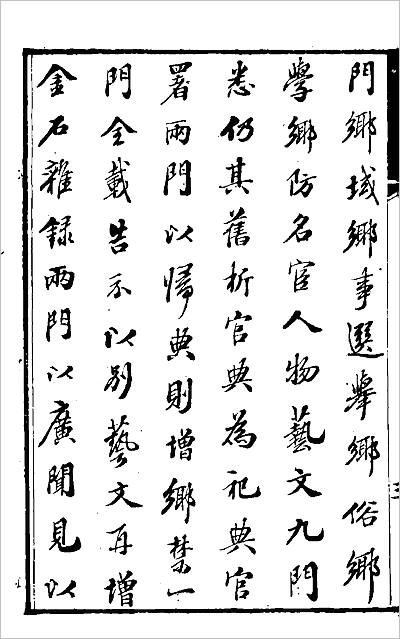 門鄉域鄉事選舉鄉俗鄉
學鄉防名宦人物藝文九門
悉仍其舊析官典為祀典官
署兩門以歸典則增鄉禁一
門全載告示以別藝文再增
金石雜錄兩門以廣聞見以